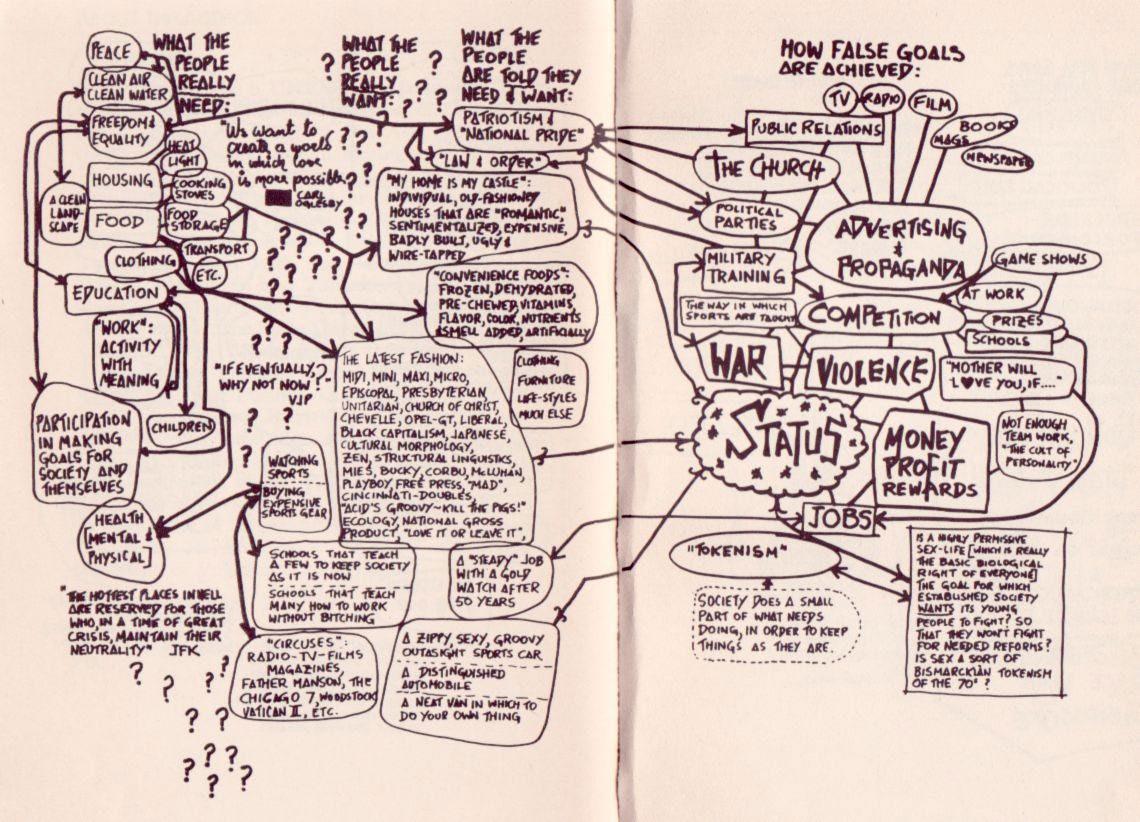 WHAT THE
PEOPLE
REALLY
NEED:
PEACE
CLEAN AIR
CLEAN WATER
FREEDOM &
EQUALITY
HEAT
LIGHT
HOUSING
COOKING
STOVES
A CLEAN
LAND-
SCAPE
FOOD
FOOD
STORAGE
CLOTHING
TRANSPORT
ETC.
EDUCATION
"WORK":
ACTIVITY
WITH
MEANING
PARTICIPATION
IN MAKING
GOALS FOR
SOCIETY AND
THEMSELVES
CHILDREN
HEALTH
[MENTAL &
PHYSICAL]
"THE HOTTEST PLACES IN HELL
ARE RESERVED FOR THOSE
WHO, IN A TIME OF GREAT
CRISIS, MAINTAIN THEIR
NEUTRALITY" JFK
WHAT THE
PEOPLE
REALLY
WANT:
"We want to
create a world
in which love
is more possible
CARL
OGLESBY
"IF EVENTUALLY,
WHY NOT NOW?"
VJP
WHAT THE
PEOPLE
ARE TOLD THEY
NEED & WANT:
PATRIOTISM &
"NATIONAL PRIDE"
"LAW & ORDER"
"MY HOME IS MY CASTLE":
INDIVIDUAL, OLD-FASHIONEY
HOUSES THAT ARE "ROMANTIC",
SENTIMENTALIZED, EXPENSIVE,
BADLY BUILT, UGLY &
WIRE-TAPPED
"CONVENIENCE FOODS":
FROZEN, DEHYDRATED,
PRE-CHEWED, VITAMINS,
FLAVOR, COLOR, NUTRIENTS
& SMELL ADDED, ARTIFICIALLY
THE LATEST FASHION:
MIDI, MINI, MAXI, MICRO,
EPISCOPAL, PRESBYTERIAN,
UNITARIAN, CHURCH OF CHRIST,
CHEVELLE, OPEL-GT, LIBERAL,
BLACK CAPITALISM, JAPANESE,
CULTURAL MORPHOLOGY,
ZEN, STRUCTURAL LINGUISTICS,
MIES, BUCKY, CORBU, McLUHAN,
PLAYBOY, FREE PRESS, "MAD",
CINCINNATI-DOUBLES,
"ACID'S GROOVY-KILL THE PIGS!"
ECOLOGY, NATIONAL GROSS
PRODUCT, "LOVE IT OR LEAVE IT",
CLOTHING
FURNITURE
LIFE-STYLES
MUCH ELSE
WATCHING
SPORTS
BUYING
EXPENSIVE
SPORTS GEAR
SCHOOLS THAT TEACH
A FEW TO KEEP SOCIETY
AS IT IS NOW
SCHOOLS THAT TEACH
MANY HOW TO WORK
WITHOUT BITCHING
A "STEADY" JOB
WITH A GOLD
WATCH AFTER
50 YEARS
"CIRCUSES":
RADIO-TV-FILMS
MAGAZINES,
FATHER MANSON, THE
CHICAGO 7, WOODSTOCK
VATICAN II, ETC.
A ZIPPY, SEXY, GROOVY
OUTASIGHT SPORTS CAR
A DISTINGUISHED
AUTOMOBILE
A NEAT VAN IN WHICH TO
DO YOUR OWN THING
HOW FALSE GOALS
ARE ACHIEVED:
TV
RADIO
FILM
BOOKS
MAGS
NEWSPAPER
PUBLIC RELATIONS
THE CHURCH
POLITICAL
PARTIES
ADVERTISING
&
PROPAGANDA
MILITARY
TRAINING
GAME SHOWS
THE WAY IN WHICH
SPORTS ARE TAUGHT
COMPETITION
AT WORK
PRIZES
SCHOOLS
WAR
VIOLENCE
"MOTHER WILL
L♥VE YOU, IF...."
STATUS
MONEY
PROFIT
REWARDS
NOT ENOUGH
TEAM WORK,
"THE CULT OF
PERSONALITY"
JOBS
"TOKENISM"
SOCIETY DOES A SMALL
PART OF WHAT NEEDS
DOING, IN ORDER TO KEEP
THINGS AS THEY ARE.
IS A HIGHLY PERMISSIVE
SEX-LIFE [WHICH IS REALLY
THE BASIC BIOLOGICAL
RIGHT OF EVERYONE]
THE GOAL FOR WHICH
ESTABLISHED SOCIETY
WANTS ITS YOUNG
PEOPLE TO FIGHT? SO
THAT THEY WON'T FIGHT
FOR NEEDED REFORMS?
IS SEX A SORT OF
BISMARCKIAN TOKENISM
OF THE 70S?